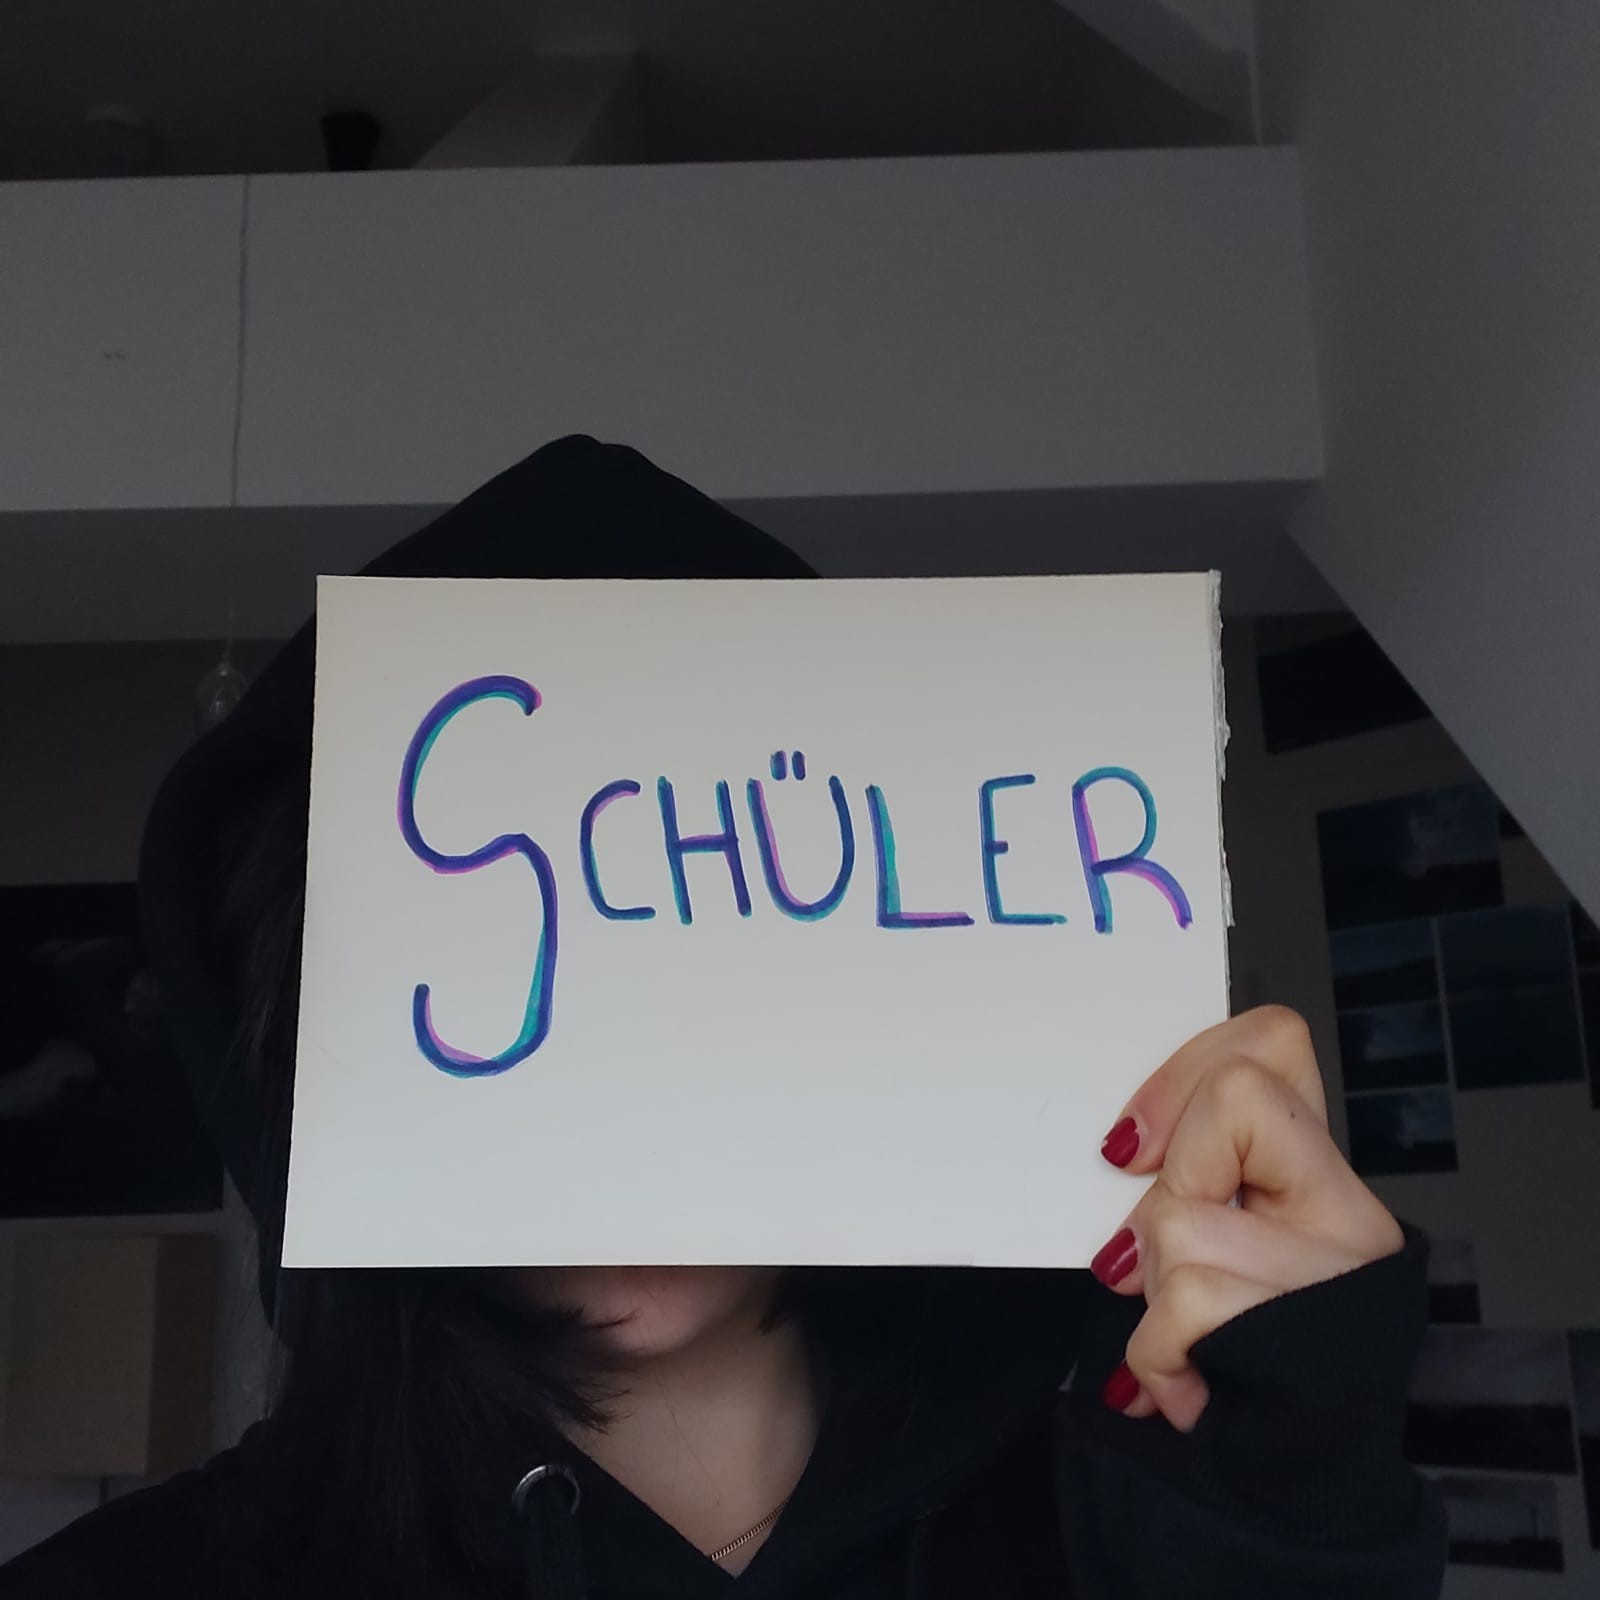 SCHÜLER